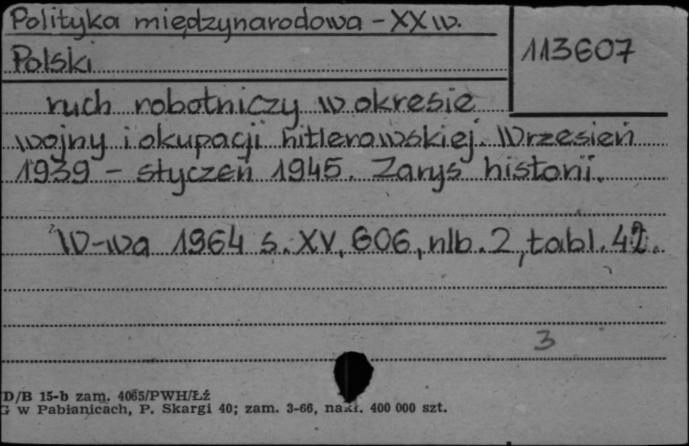 Polityka międzynarodowa - XX w.
113607
Polski
ruch robotniczy w okresie
wojny i okupacji hitlerowskiej. Wrzesień
1939 - styczeń 1945. Zarys historii.
W-wa 1964 s. XV, 606, nlb. 2, tabl. 42.
3
D/B 15-b zam. 4065/PWH/Łź
G w Pabianicach, P. Skargi 40; zam. 3-66, nakł. 400 000 szt.